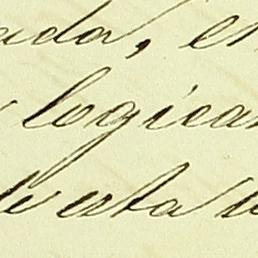 ada, e
logica
de esta